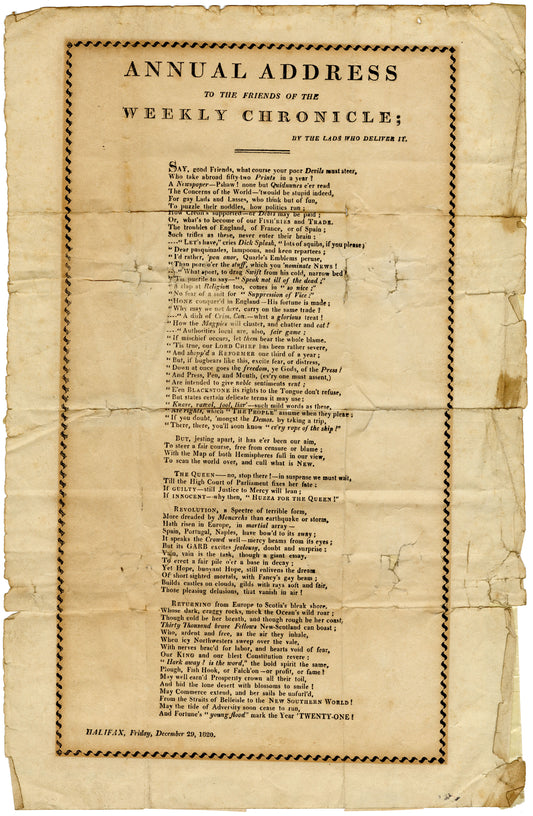 ANNUAL ADDRESS
TO THE FRIENDS OF THE
WEEKLY CHRONICLE;
BY THE LADS WHO DELIVER IT.
SAY, good Friends, what course your poor Devils must steer,
Who take abroad fifty-two Prints in a year?
A Newspaper—Pshaw! none but Quidnuncs e'er read
The Concerns of the World—'twould be stupid indeed,
For gay Lads and Lasses, who think but of fun,
To puzzle their noddles, how politics run;
How Credit's supported—or Debts may be paid;
Or, what's to become of our FISH'RIES and TRADE.
The troubles of England, of France, or of Spain;
Such trifles as these, never enter their brain:
...."LET's have," cries Dick Splash, "lots of squibs, if you please;
"Dear pasquinades, lampoons, and keen repartees;
"I'd rather, 'pon onor, Quarle's Emblems peruse,
"Than pore o'er the stuff, which you 'nominate NEWS!
"What sport, to drag Swift from his cold, narrow bed
"'Tis puerile to say—"Speak not ill of the dead;"
"A slap at Religion too, comes in "so nice;"
"No fear of a suit for "Suppression of Vice:"
"HONE conquer'd in England—His fortune is made;
"Why may we not here, carry on the same trade?
...."A dish of Crim. Con.—what a glorious treat!
"How the Magpies will cluster, and chatter and eat!
...."Authorities local are, also, fair game;
"If mischief occurs, let them bear the whole blame.
"'Tis true, our LORD CHIEF has been rather severe,
"And shopp'd a REFORMER one third of a year;
"But, if bugbears like this, excite fear, or distress,
"Down at once goes the freedom, ye Gods, of the Press!
"And Press, Pen, and Mouth, (ev'ry one must assent,)
"Are intended to give noble sentiments vent;
"E'en BLACKSTONE its rights to the Tongue don't refuse,
"But states certain delicate terms it may use:
"Knave, rascal, fool, liar—such mild words as these,
"Are rights, which "THE PEOPLE" assume when they please;
"If you doubt, 'mongst the Demos. by taking a trip,
"There, there, you'll soon know "ev'ry rope of the ship!"
BUT, jesting apart, it has e'er been our aim,
To steer a fair course, free from censure or blame;
With the Map of both Hemispheres full in our view,
To scan the world over, and cull what is NEW.
THE QUEEN—no, stop there!—in suspense we must wait,
Till the High Court of Parliament fixes her fate:
If GUILTY—still Justice to Mercy will lean;
If INNOCENT—why then, "HUZZA FOR THE QUEEN!"
REVOLUTION, a Spectre of terrible form,
More dreaded by Monarchs than earthquake or storm,
Hath risen in Europe, in martial array—
Spain, Portugal, Naples, have bow'd to its sway;
It speaks the Crowd well—mercy beams from its eyes;
But its GARB excites jealousy, doubt and surprise:
Vain, vain is the task, though a giant essay,
To erect a fair pile o'er a base in decay;
Yet Hope, buoyant Hope, still enlivens the dream
Of short sighted mortals, with Fancy's gay beam;
Builds castles on clouds, gilds with rays soft and fair,
Those pleasing delusions, that vanish in air!
RETURNING from Europe to Scotia's bleak shore,
Whose dark, craggy rocks, mock the Ocean's wild roar;
Though cold be her breath, and though rough be her coast,
Thirty Thousand brave Fellows New-Scotland can boast;
Who, ardent and free, as the air they inhale,
When icy Northwesters sweep over the vale,
With nerves brac'd for labor, and hearts void of fear,
Our KING and our blest Constitution revere:
"Hark away! is the word," the bold spirit the same,
Plough, Fish Hook, or Falch'on—or profit, or fame!
May well earn'd Prosperity crown all their toil,
And bid the lone desert with blossoms to smile!
May Commerce extend, and her sails be unfurl'd,
From the Straits of Belleisle to the NEW SOUTHERN WORLD!
May the tide of Adversity soon cease to run,
And Fortune's "young flood" mark the Year TWENTY-ONE!
HALIFAX, Friday, December 29, 1820.